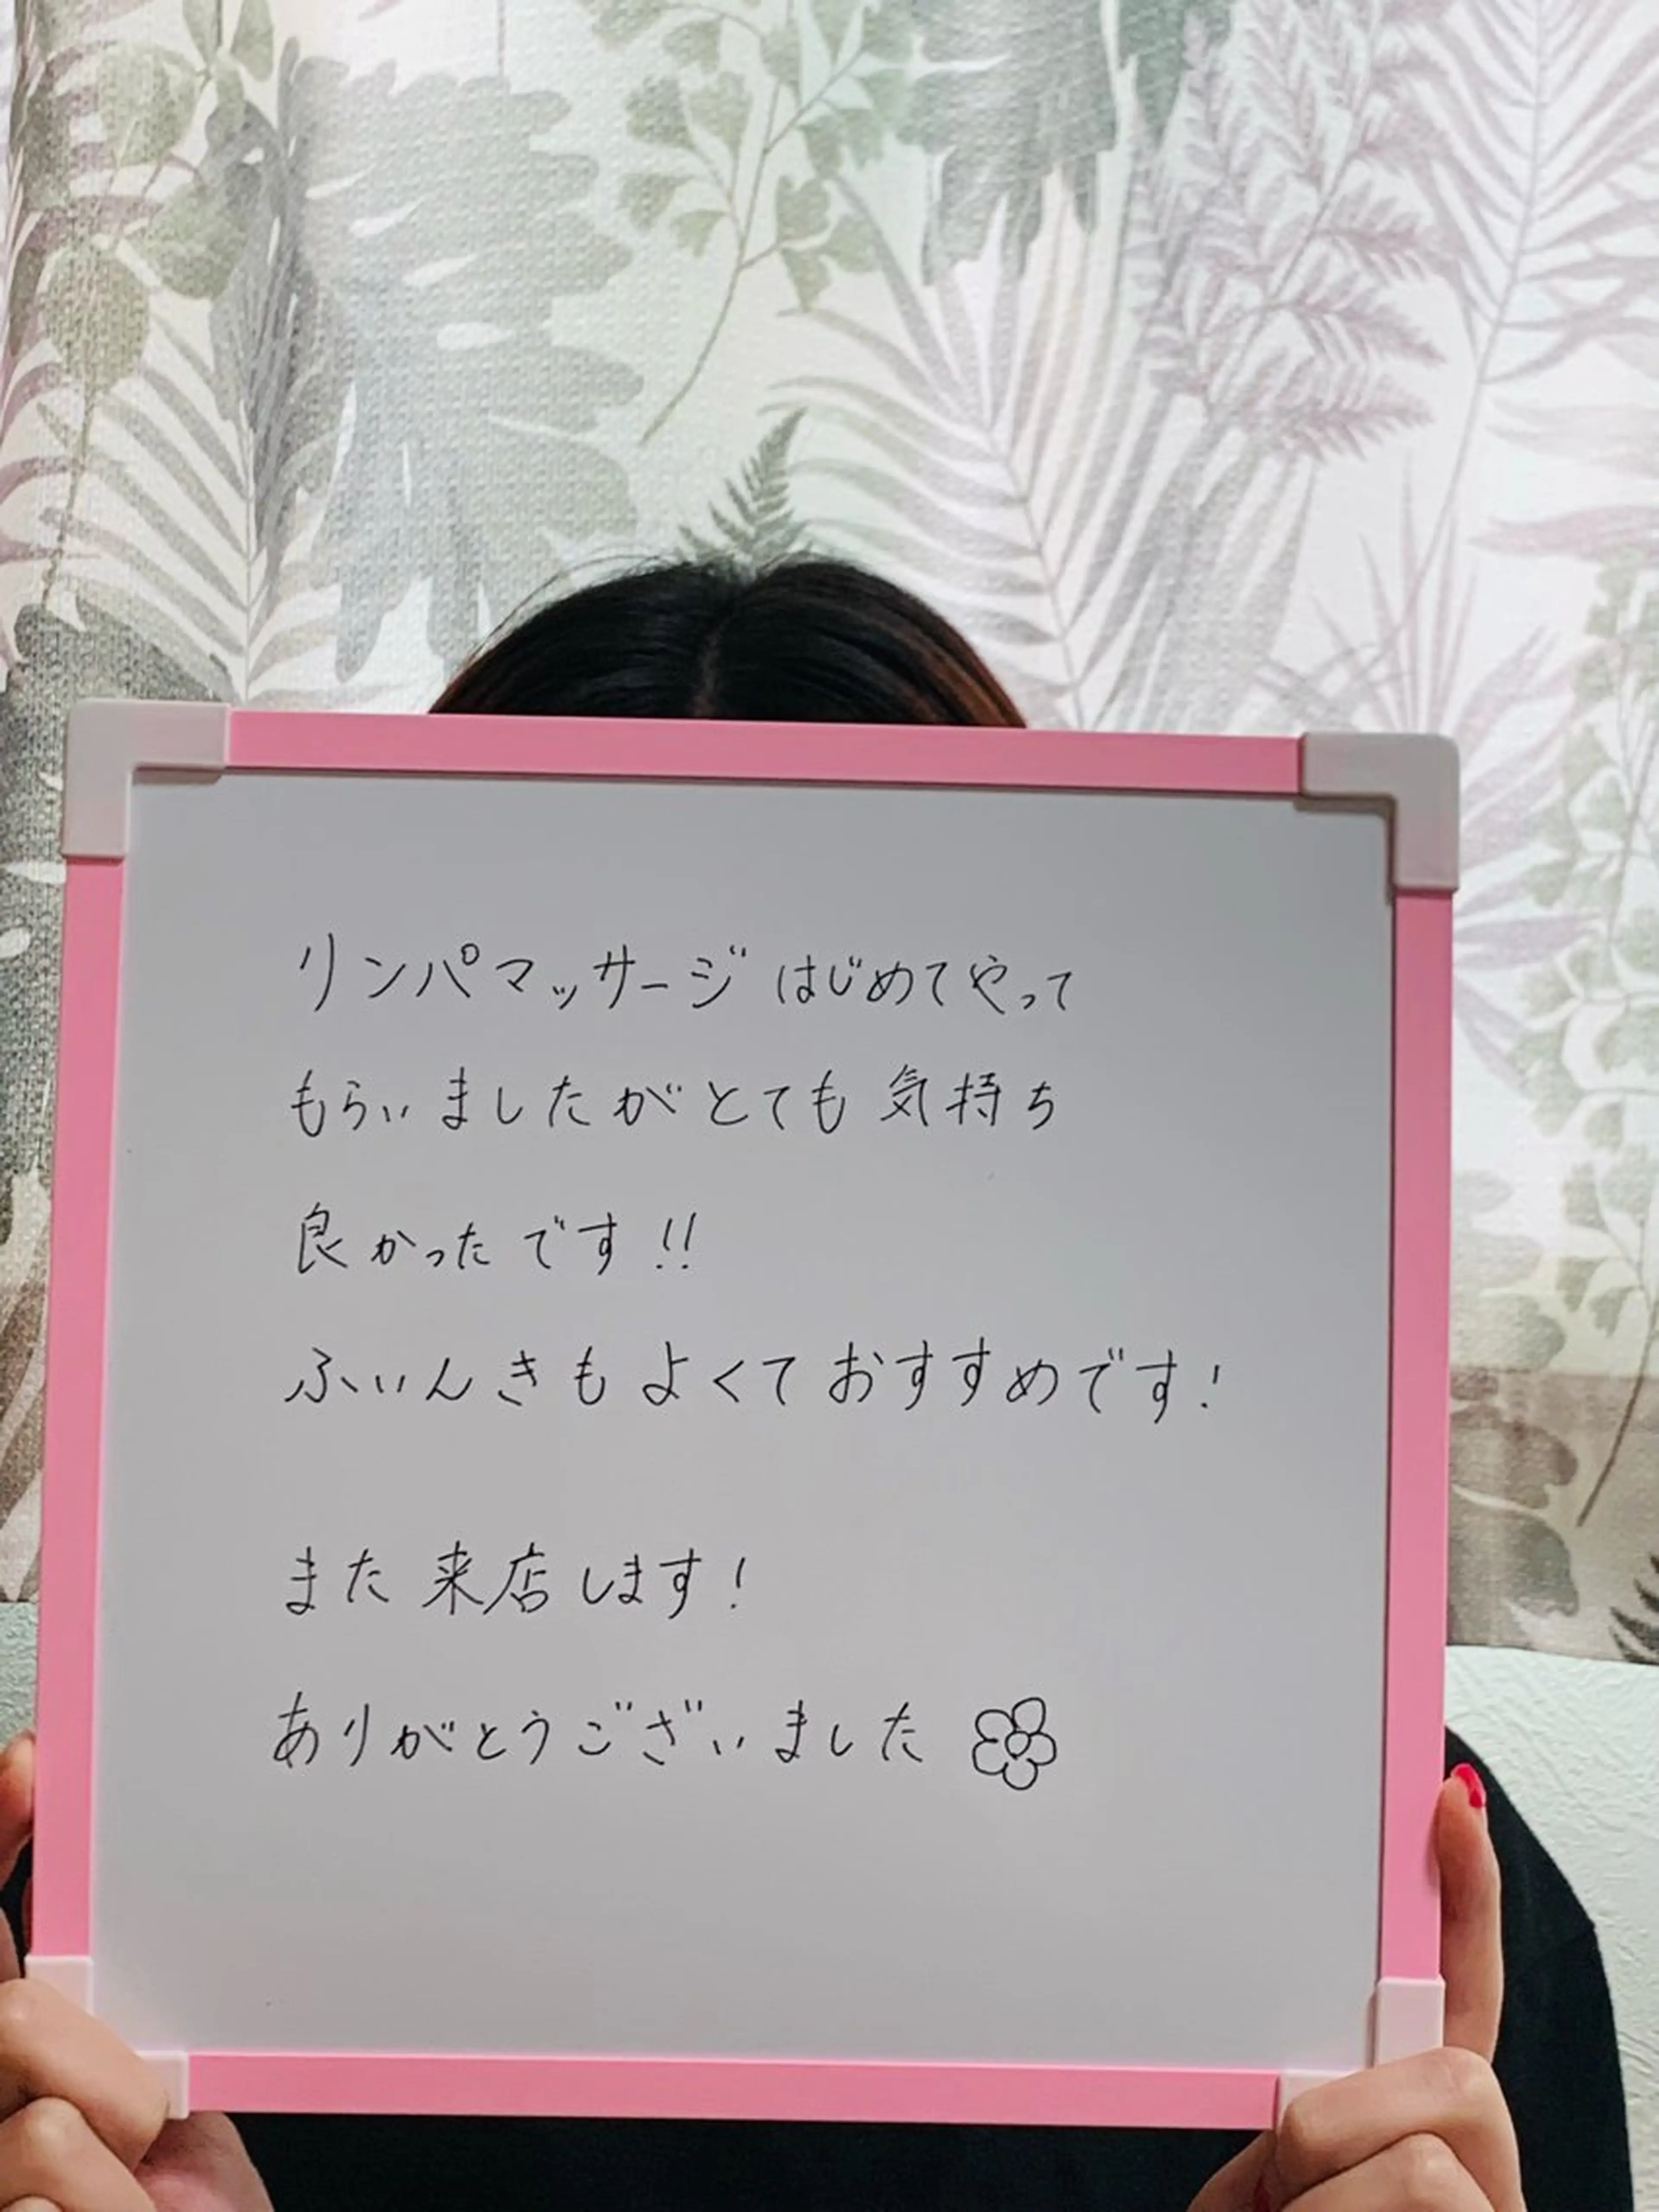 リンパマッサージはじめてやって
もらいましたがとても気持ち
良かったです!!
ふいんきもよくておすすめです!
また来店します!
ありがとうございました